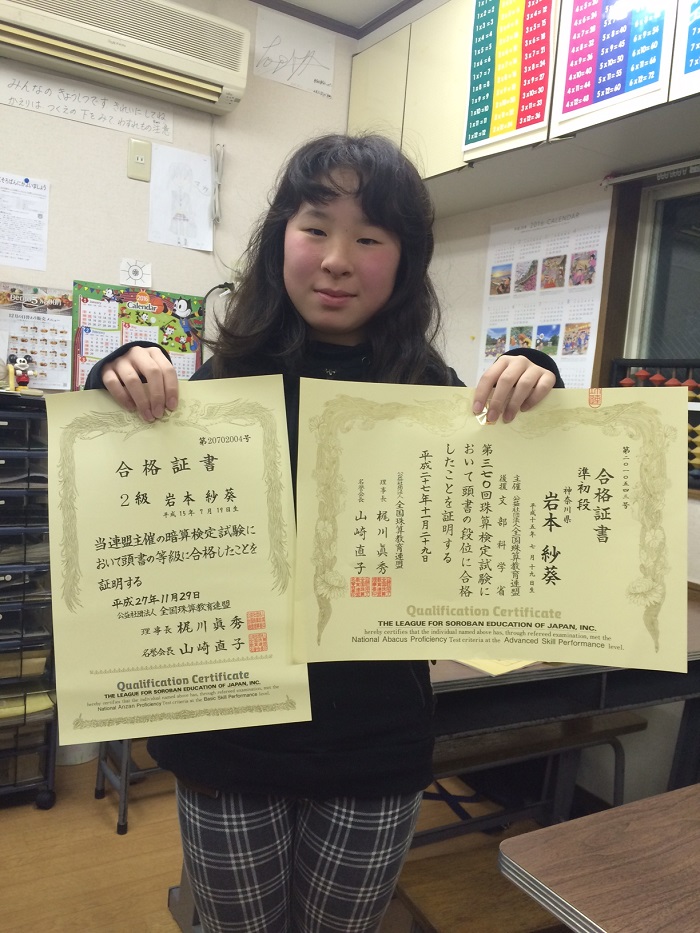 みんなの きょうしつです きれいにしてね
かえりは つくえの下を みて わすれもの注意
そろばんしましょう
2016
Calendar
NEW 2016 CALENDAR
第20702004号
合格証書
2級 岩本 紗葵
平成15年 7月19日生
当連盟主催の暗算検定試験に
おいて頭書の等級に合格したことを
証明する
平成27年11月29日
公益社団法人 全国珠算教育連盟
理事長 梶川眞秀
名誉会長 山崎直子
Qualification Certificate
THE LEAGUE FOR SOROBAN EDUCATION OF JAPAN, INC.
hereby certifies that the individual named above has, through refereed examination, met the
National Anzan Proficiency Test criteria at the Basic Skill Performance level.
第二〇一〇五四三号
合格証書
準初段
神奈川県
岩本 紗葵
平成十五年 七月十九日生
主催 公益社団法人全国珠算教育連盟
後援 文部科学省
第三七〇回珠算検定試験に
おいて頭書の段位に合格
したことを証明する
平成二十七年十一月二十九日
公益社団法人 全国珠算教育連盟
理事長 梶川眞秀
名誉会長 山崎直子
Qualification Certificate
THE LEAGUE FOR SOROBAN EDUCATION OF JAPAN, INC.
hereby certifies that the individual named above has, through refereed examination, met the
National Abacus Proficiency Test criteria at the Advanced Skill Performance level.